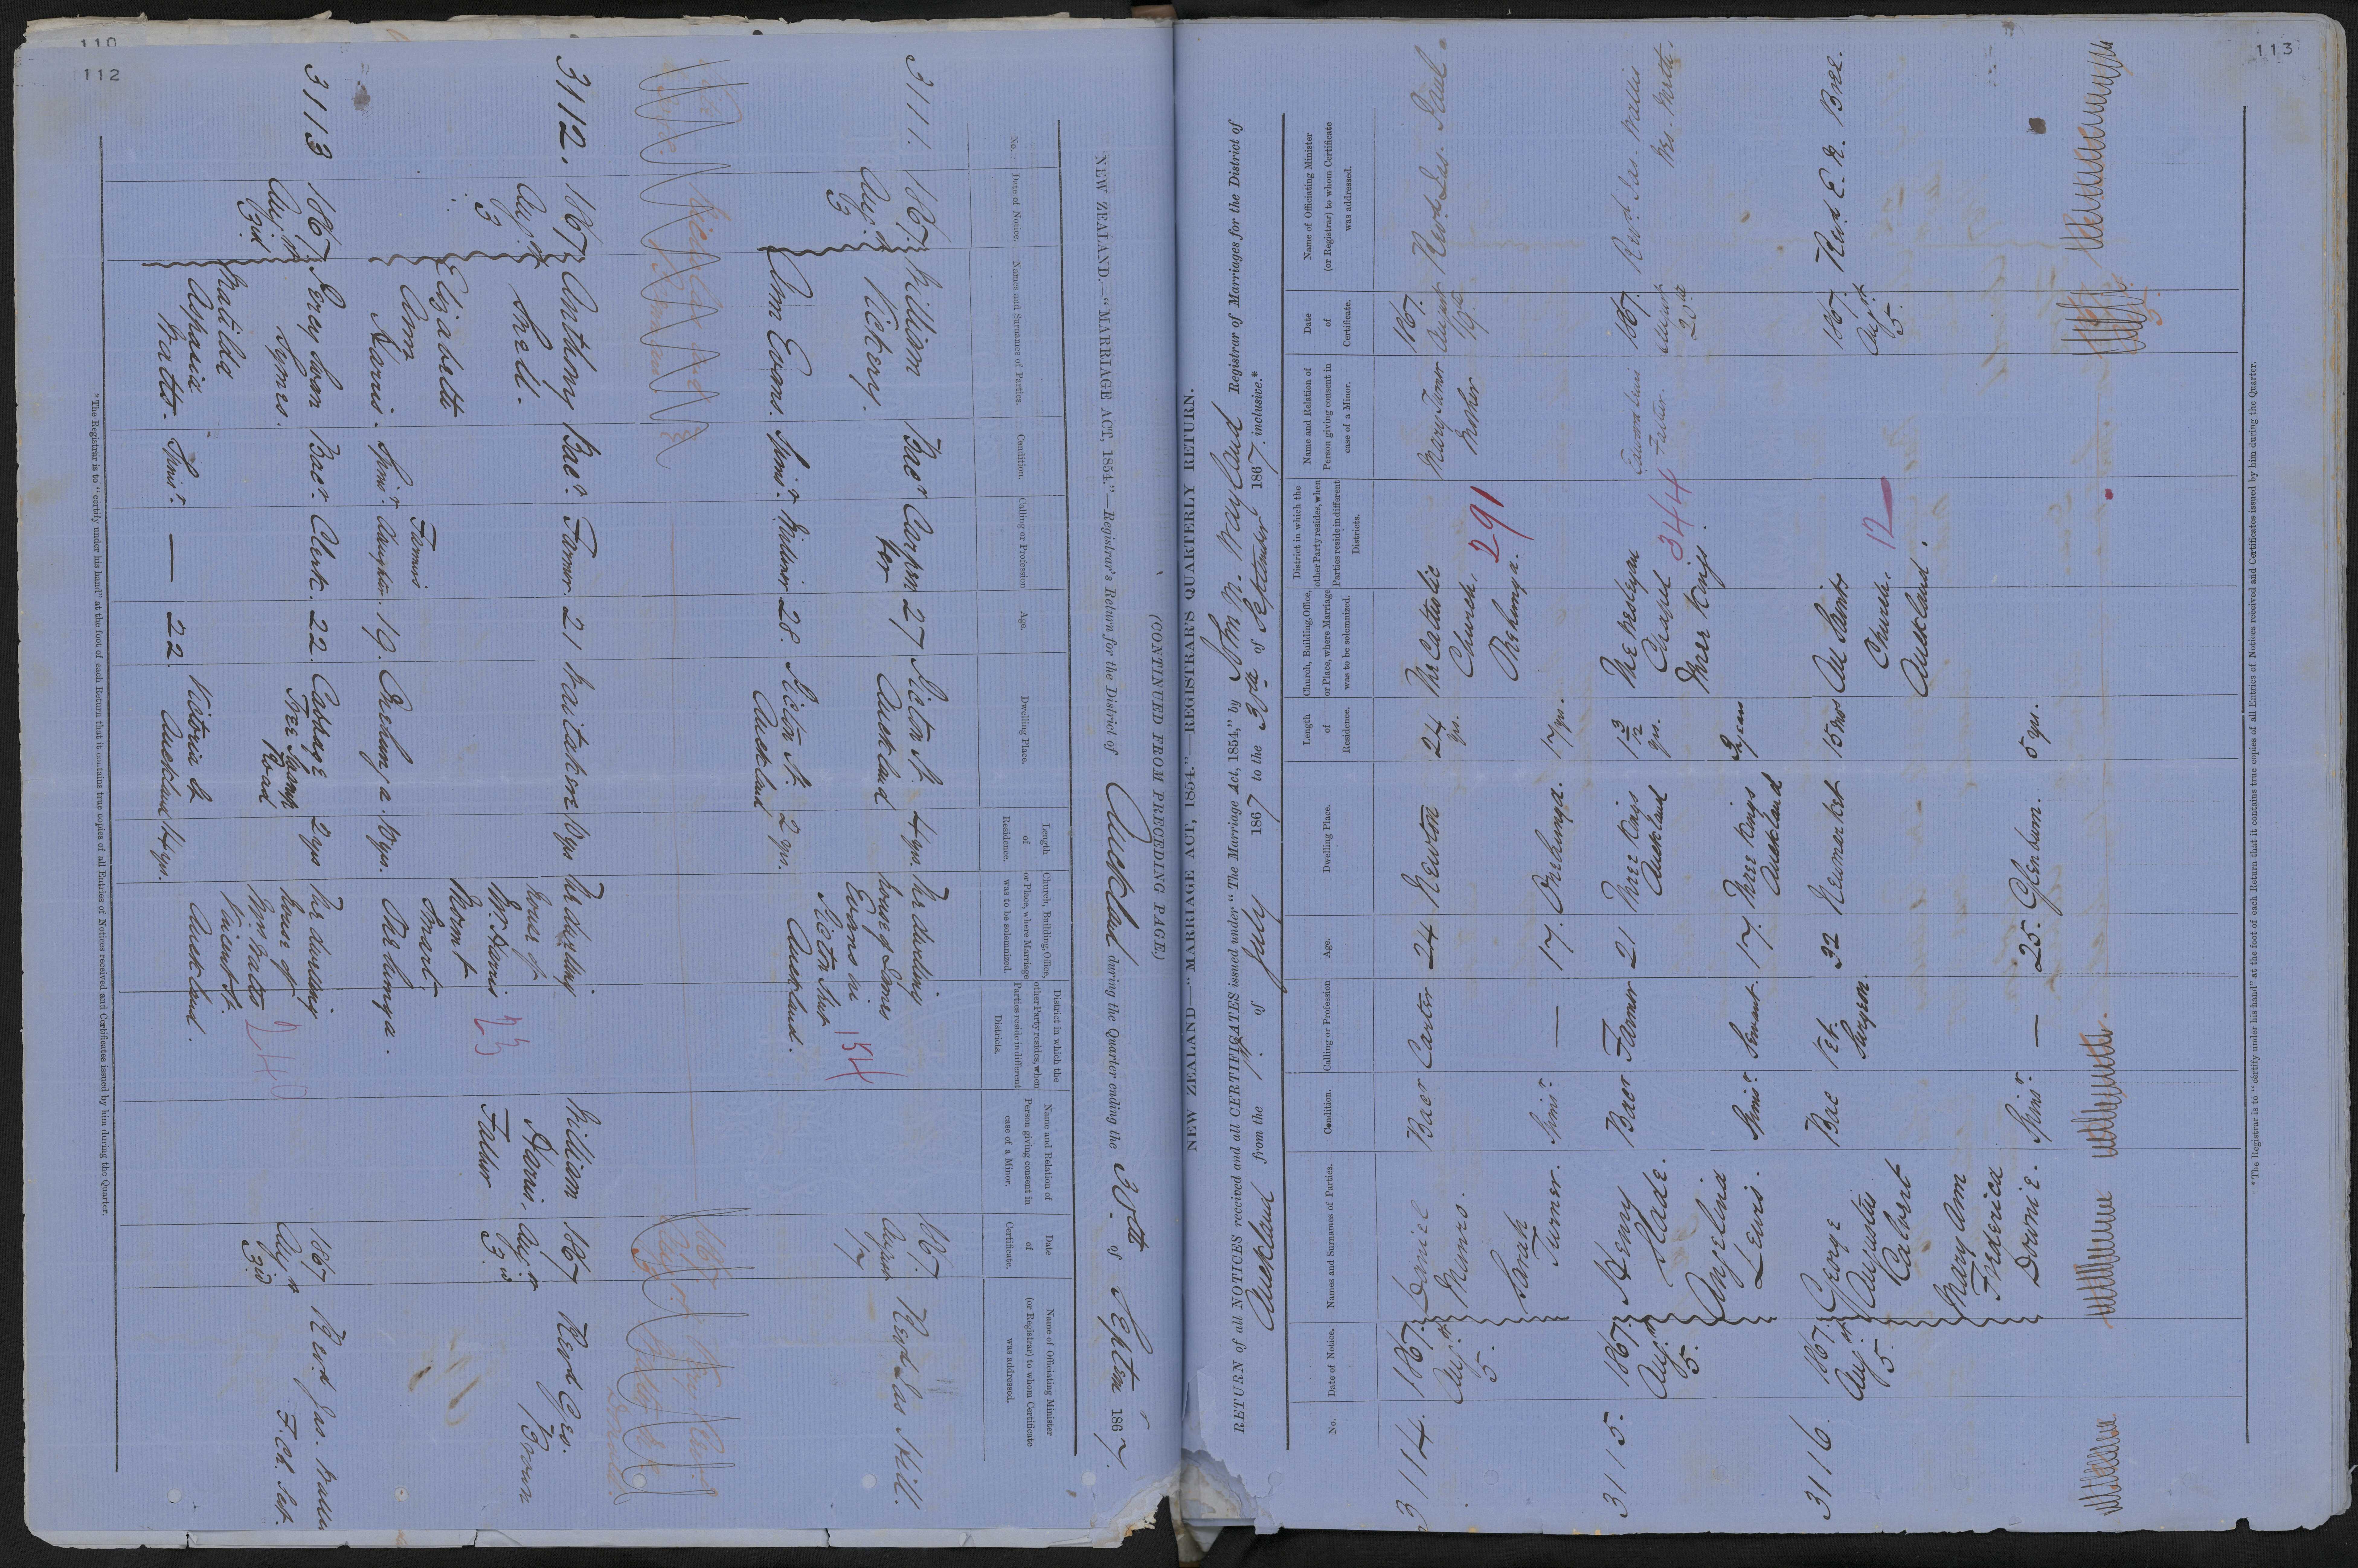 110
112
(CONTINUED FROM PRECEDING PAGE.)
NEW ZEALAND.—"MARRIAGE ACT, 1854."—Registrar's Return for the District of Auckland during the Quarter ending the 30th of Septem r 1867.
No.
Date of Notice.
Names and Surnames of Parties.
Condition.
Calling or Profession
Age.
Dwelling Place.
Length
of
Residence.
Church, Building, Office,
or Place, where Marriage
was to be solemnized.
District in which the
other Party resides, when
Parties reside in different
Districts.
Name and Relation of
Person giving consent in
case of a Minor.
Date
of
Certificate.
Name of Officiating Minister
(or Registrar) to whom Certificate
was addressed.
3111.
1867.
Augst
3
William
Vickery.
Bacr
Carpen
ter
27
Victn St.
Auckland
4 yrs.
The dwelling
house of James
Evans in
Victn Street
Auckland.
154
1867.
August
17
Revd Jas Hill.
Ann Evans.
Spinsr.
Milliner
28.
Victn St.
Auckland
2 yrs.
3112.
1867
Augst
3
Anthony
Sned.
Bacr.
Farmer.
21
Waitakere
10 yrs
The dwelling
house of
Mr. Harris
Mount
Smart,
Onehunga.
23
William
Harris,
Father
1867
Augst
3rd
Revd Geo.
Brown
Elizabeth
Amy
Harris.
Spinsr.
Farmer's
daughter.
19.
Onehunga.
10 yrs.
3113
1867.
Augst
3rd
Percy Swan
Symes.
Bacr.
Clerk.
22.
Cabbage
Tree Swamp
Road
2 yrs
The dwelling
house of
Mr. Watts
Vincent St.
Auckland.
240
1867
Augst
3rd
Revd Jas. Wallis
Matilda
Aspasia
Watts.
Spinsr.
—
22.
Victoria St
Auckland
14 yrs.
* The Registrar is to "certify under his hand" at the foot of each Return that it contains true copies of all Entries of Notices received and Certificates issued by him during the Quarter.
113
NEW ZEALAND—"MARRIAGE ACT, 1854."—REGISTRAR'S QUARTERLY RETURN.
RETURN of all NOTICES received and all CERTIFICATES issued under "The Marriage Act, 1854," by John N. Wayland Registrar of Marriages for the District of
Auckland from the 1st of July 1867 to the 30th of September 1867 inclusive.*
No.
Date of Notice.
Names and Surnames of Parties.
Condition.
Calling or Profession
Age.
Dwelling Place.
Length
of
Residence.
Church, Building, Office,
or Place, where Marriage
was to be solemnized.
District in which the
other Party resides, when
Parties reside in different
Districts.
Name and Relation of
Person giving consent in
case of a Minor.
Date
of
Certificate.
Name of Officiating Minister
(or Registrar) to whom Certificate
was addressed.
3114.
1867.
Augst
5.
Daniel
Munro.
Bacr
Carter
24
Newton
24
yrs.
The Catholic
Church,
Onehunga.
291
Mary Turner
Mother
1867.
August
19th
Revd Jas. Paul.
Sarah
Turner.
Spinsr.
—
17.
Onehunga.
17 yrs.
3115.
1867.
Augst
5.
Henry
Slade.
Bacr
Farmer
21
Three Kings
Auckland
1 9/12
yrs.
The Wesleyan
Chapel
Three Kings.
344
Edward Lewis
Father.
1867.
August
20th
Revd. Jas. Wallis
Angelina
Lewis.
Spinsr.
Servant.
17.
Three Kings
Auckland
3116.
1867.
Augst
5.
George
Augustus
Calvert
Bac
Vet.
Surgeon.
32
Newmarket
15 mos
All Saints
Church,
Auckland.
12
1867.
Augst
5.
Revd. E. N. Bree.
Mary Ann
Frederica
Downie.
Spinsr
—
25.
Glenburn.
5 yrs.
* The Registrar is to "certify under his hand" at the foot of each Return that it contains true copies of all Entries of Notices received and Certificates issued by him during the Quarter.